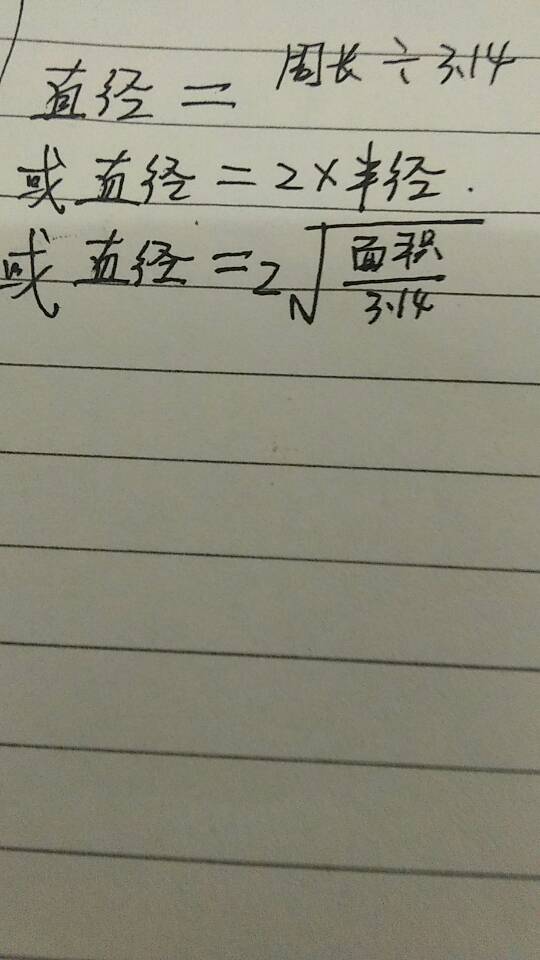 直径=周长÷3.14
或直径=2×半径.
或直径=2√(面积/3.14)